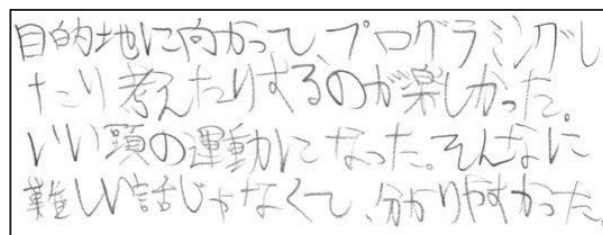 目的地に向かって、プログラミングし
たり考えたりするのが楽しかった。
いい頭の運動になった。そんなに
難しい話じゃなくて、分かりやすかった。